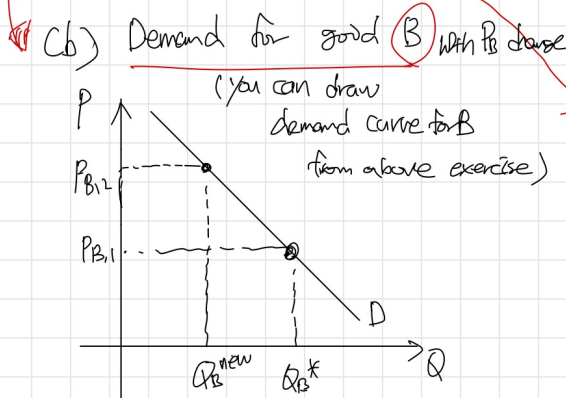 (b) Demand for good B with P_B change
(you can draw
demand curve for B
from above exercise)
P
P_B,2
P_B,1
D
Q_B^new Q_B^*
Q